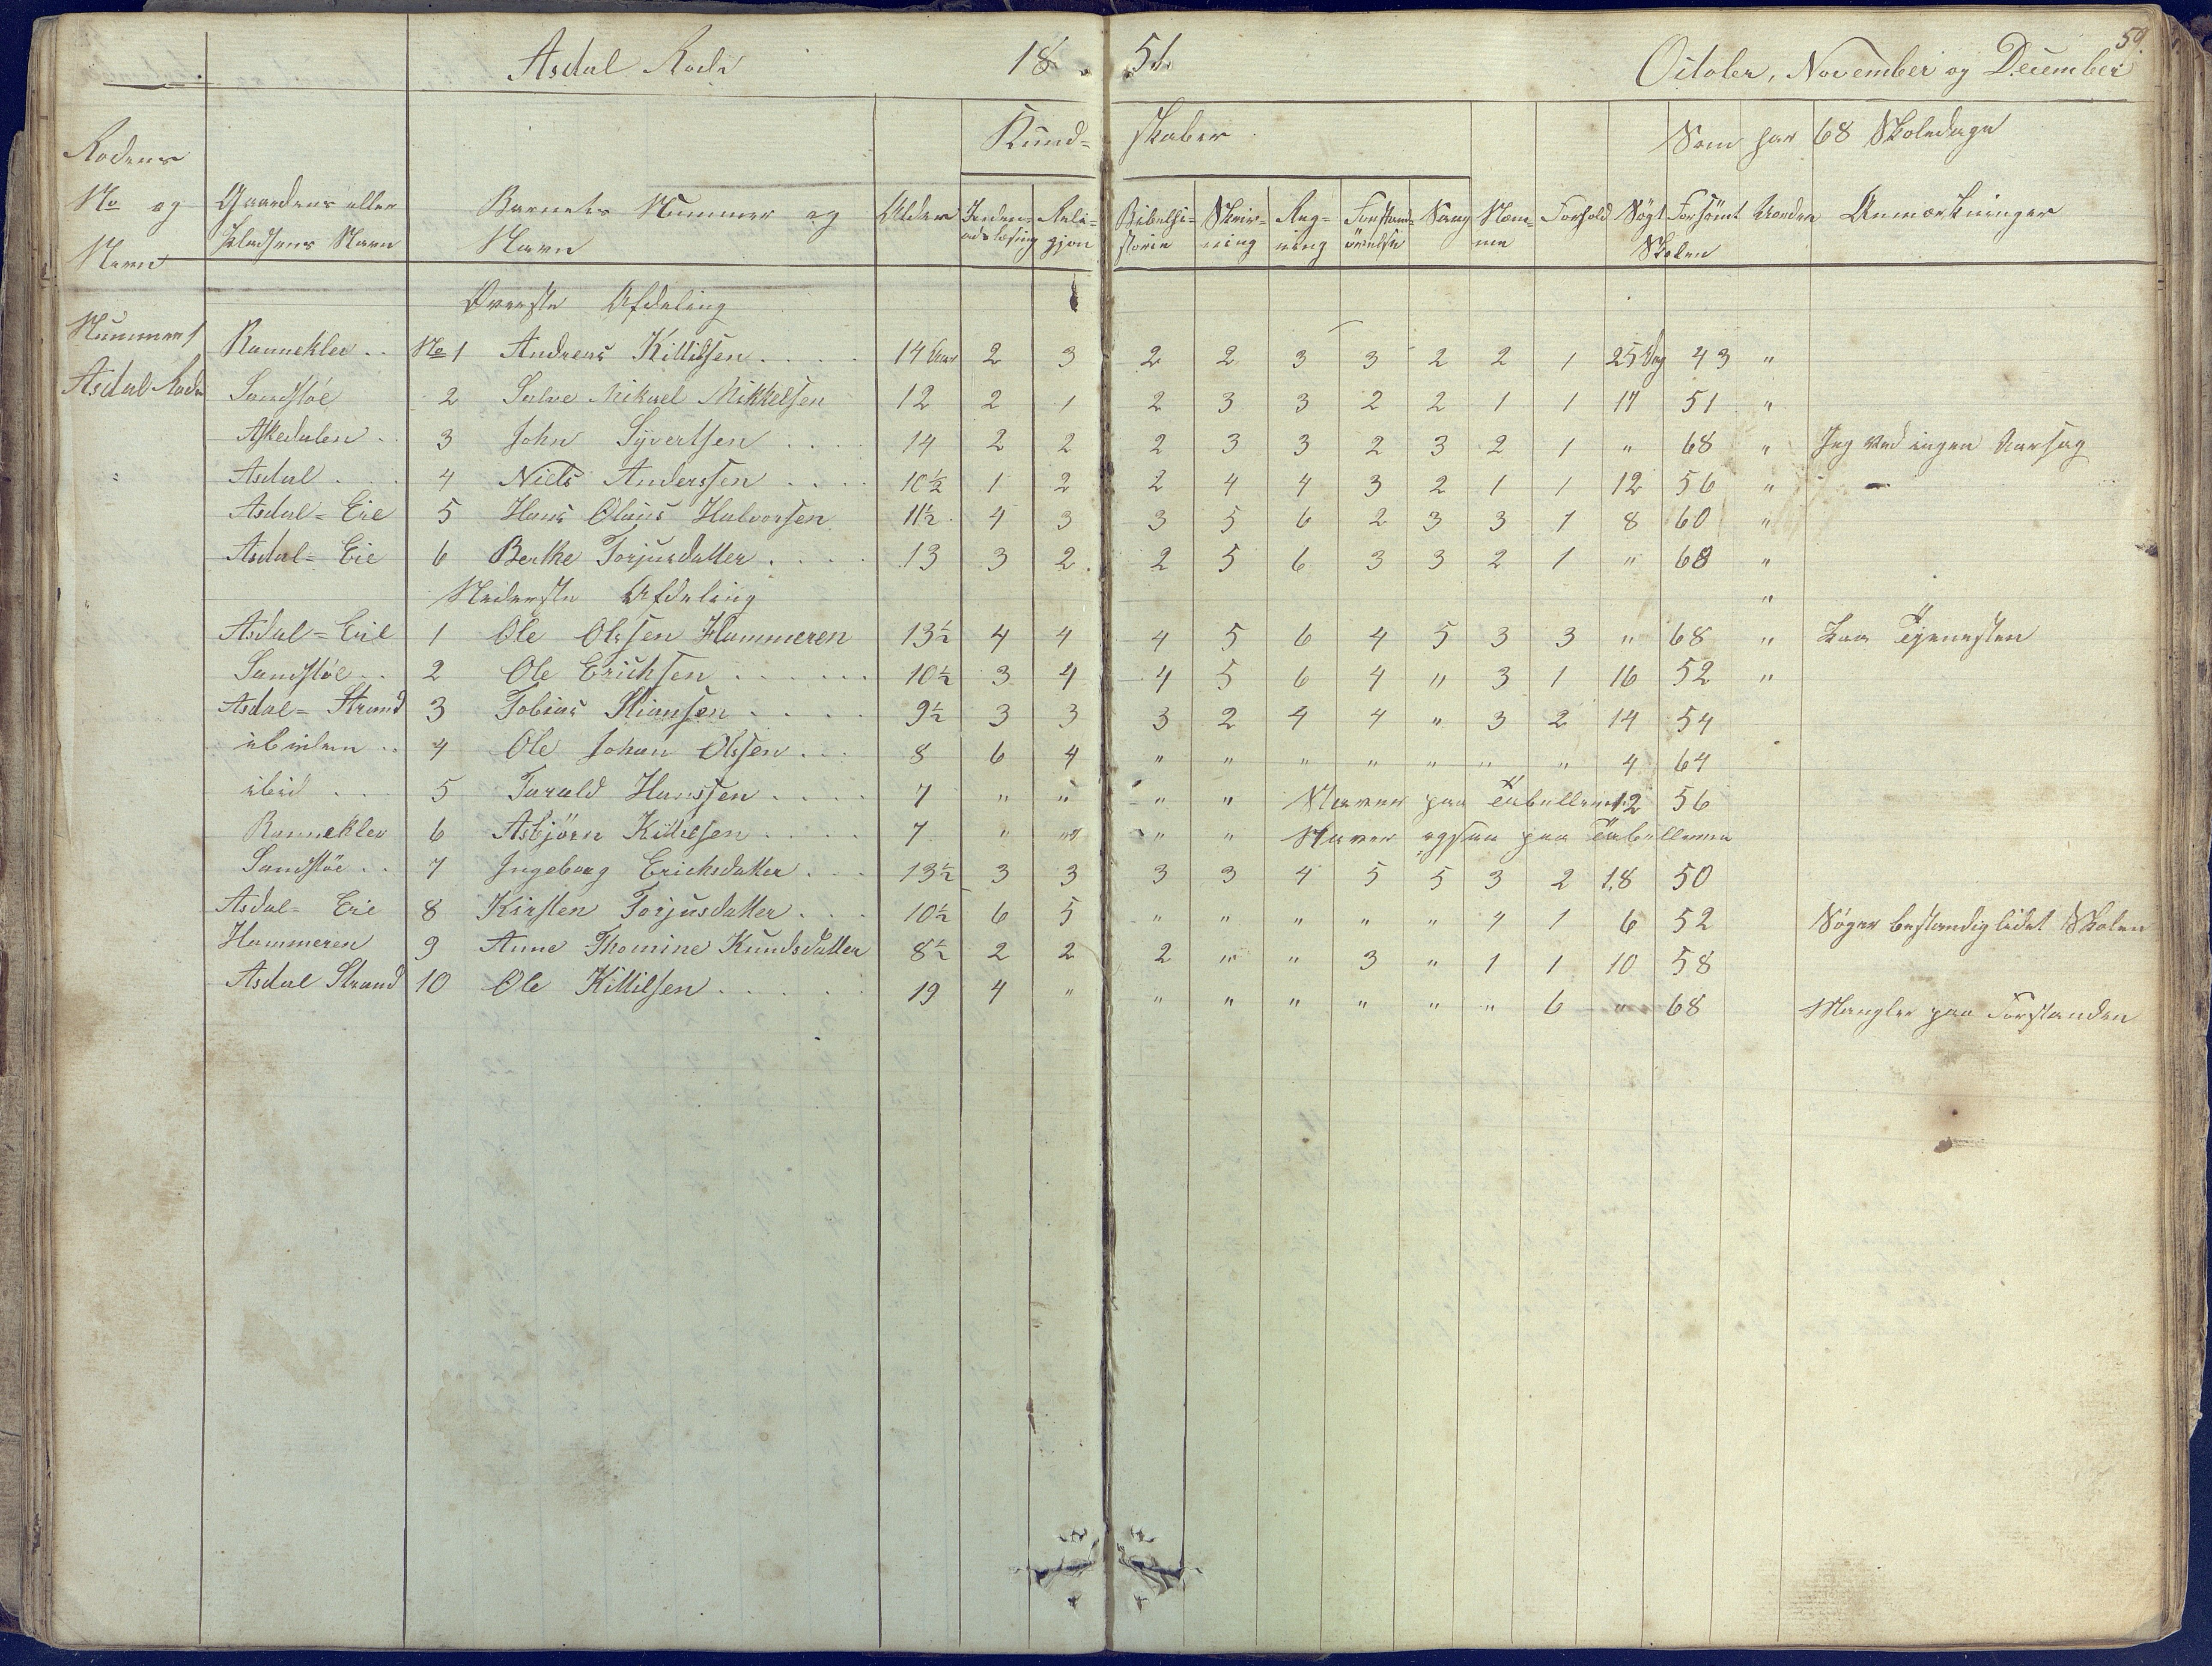 59.
Asdal Rode 1851. October, November og December
Kund= skaber Som har 68 Skoledage
Rodens
No og Gaardens eller Barnets Nummer og Alder Inden= Reli= Bibelhi= Skriv= Reg= Forstand= Sang Nem= Forhold Søgt Forsömt Anmærkninger
Navn Pladsens Navn Navn adslæsing gjon storie ning ning övelse me Skolen
Øverste Afdeling
Nummer 1 Ranneklev . . No 1 Andreas Kittilsen . . . . 14 Aar 2 3 2 2 3 3 2 2 1 25 Dag 43 "
Asdal Rode Sandstøe 2 Salve Mikael Mikkelsen 12 2 1 2 3 3 2 2 1 1 17 51 "
Askedalen . . 3 John Syvertsen . . . . 14 2 2 2 3 3 2 3 2 1 " 68 " Jeg ved ingen Aarsag
Asdal . . . 4 Niels Anderssen . . . . 10½ 1 2 2 4 4 3 2 1 1 12 56 "
Asdal= Eie 5 Hans Olaus Halvorsen 11½ 4 3 3 5 6 2 3 3 1 8 60 "
Asdal= Eie 6 Berthe Torjusdatter . . . . 13 3 2 2 5 6 3 3 2 1 " 68 "
Nederste Afdeling "
Asdal= Eie 1 Ole Olssen Hammeren 13½ 4 4 4 5 6 4 5 3 3 " 68 " Paa Tjenesten
Sandstøe . . 2 Ole Erichsen . . . . . . 10½ 3 4 4 5 6 4 " 3 1 16 52 "
Asdal= Strand 3 Tobias Stiansen . . . . 9½ 3 3 3 2 4 4 " 3 2 14 54
ibidem . . 4 Ole Johan Olssen . . . 8 6 4 " " " " " " " 4 64
ibid . . . 5 Tarald Hanssen . . . . 7 " " " " Staver paa Tabellerne 12 56
Ranneklev 6 Asbjörn Kittilsen . . . . 7 " " " " Staver ogsaa paa Tabellerne
Sandstøe . . 7 Ingeborg Erichsdatter . . . 13½ 3 3 3 3 4 5 5 3 2 18 50
Asdal= Eie 8 Kirsten Torjusdatter . . . 10½ 6 5 " " " " " 4 1 6 52 Søger bestandig lidet Skolen
Hammeren 9 Anne Thomine Knudsdatter 8½ 2 2 2 " " 3 " 1 1 10 58
Asdal Strand 10 Ole Kittilsen . . . . . 19 4 " " " " " " " 6 " 68 Mangler paa Forstanden